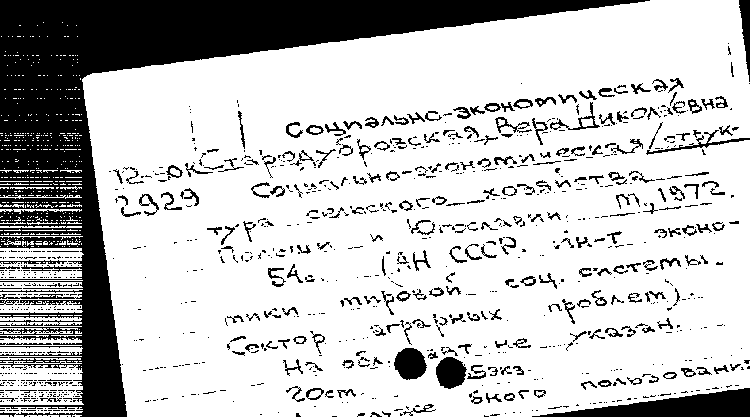 Социально-экономическая
12-50к Стародубровская, Вера Николаевна
2929 Социально-экономическая струк-
тура сельского хозяйства
Польши и Югославии. М., 1972.
54с. (АН СССР. Ин-т эконо-
мики мировой соц. системы.
Сектор аграрных проблем).
На обл. не указан.
20см. 5экз.
служе бного пользовани